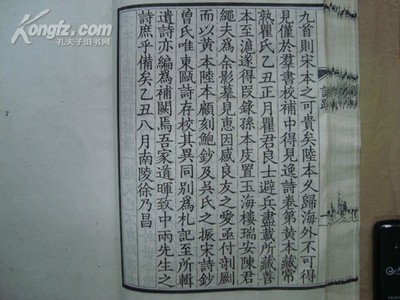 Kongfz.com
孔夫子旧书网
九首則宋本之可貴矣陸本久歸海外不可得
見僅於羣書校補中得見逸詩卷第黃本藏常
熟瞿氏乙丑正月瞿君良士避兵盡載所藏善
本至滬爲遂得叚錄孫本皮置玉海樓瑞安陳君
繩夫爲余影摹見惠因感良友之愛亟付剞劂
而以黃本陸本顧刻鮑鈔及吳氏之振宋詩鈔
曾氏唯東甌詩存校其異同別爲札記至所輯
遺詩亦編爲補闕焉吾家道暉致中兩先生之
詩庶乎備矣乙丑八月南陵徐乃昌